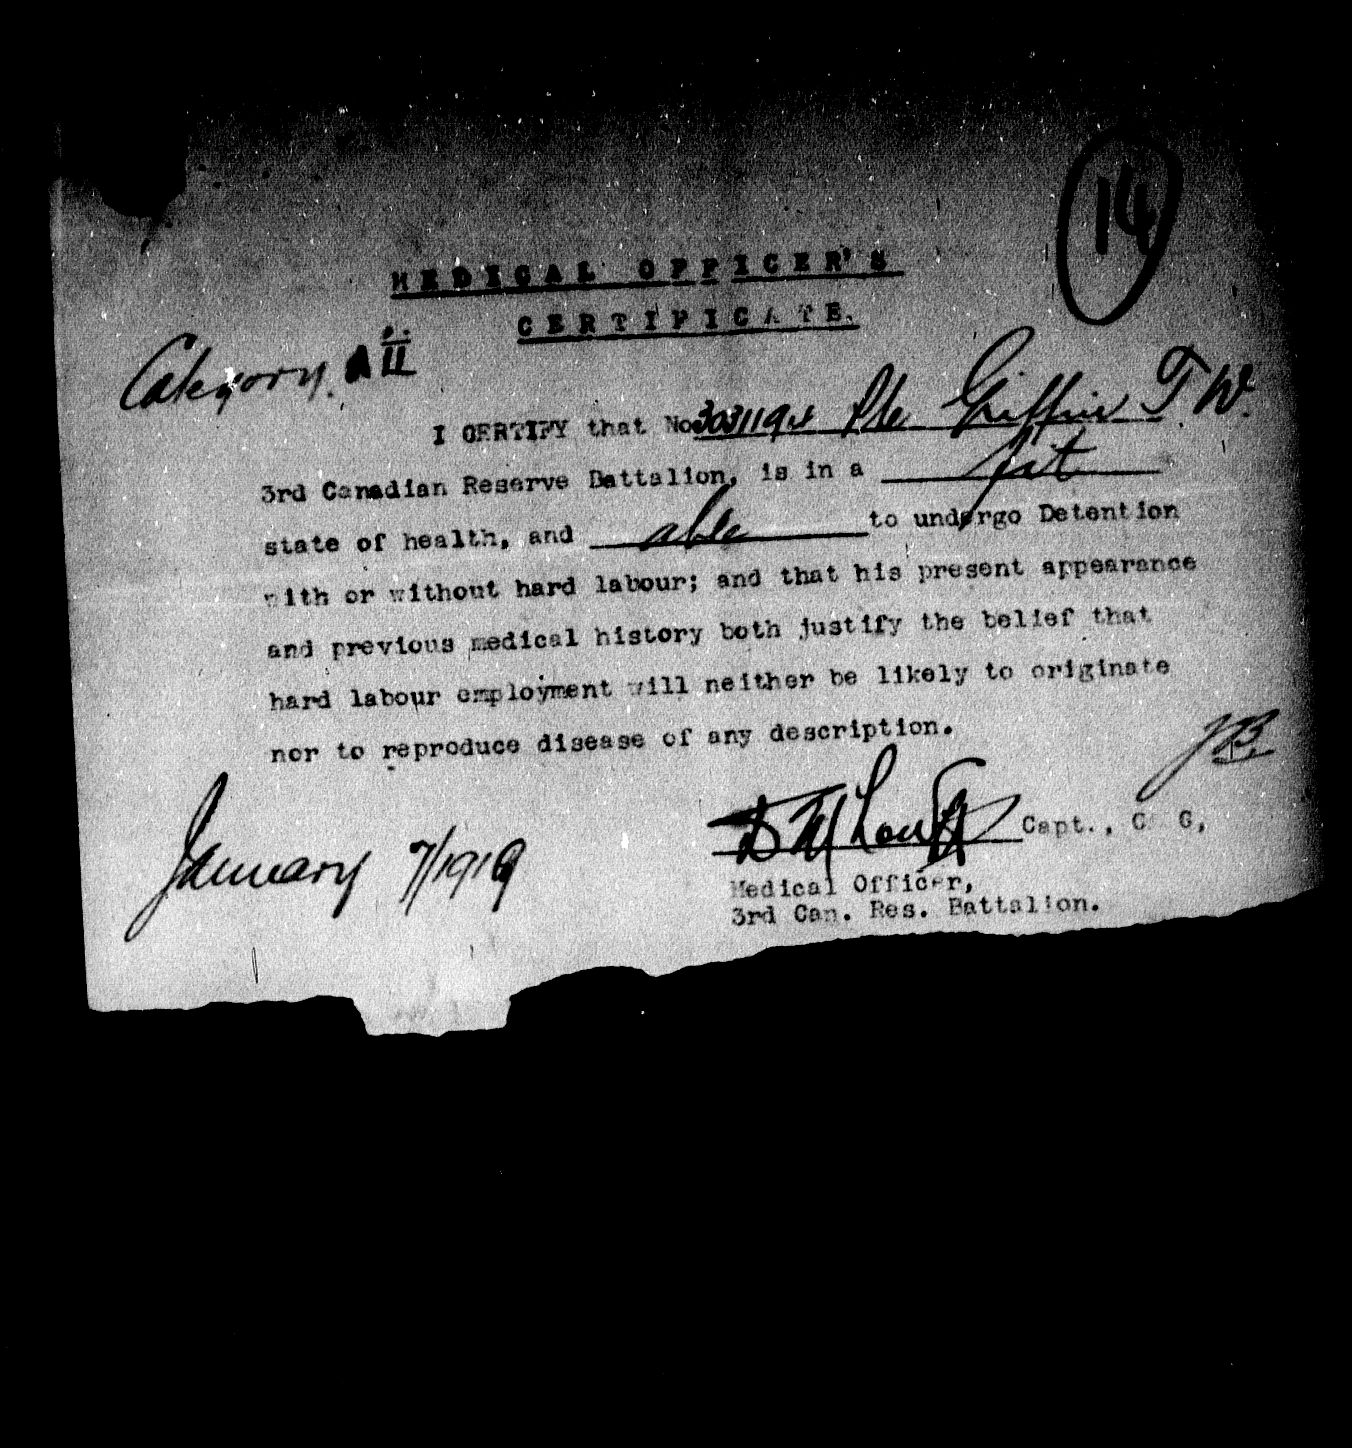 14
MEDICAL OFFICER'S
CERTIFICATE.
Category. A II
I CERTIFY that No. Pte Griffin T W.
3rd Canadian Reserve Battalion, is in a fit
state of health, and able to undergo Detention
with or without hard labour; and that his present appearance
and previous medical history both justify the belief that
hard labour employment will neither be likely to originate
nor to reproduce disease of any description.
JB
Capt., C G,
January 7/1919
Medical Officer,
3rd Can. Res. Battalion.